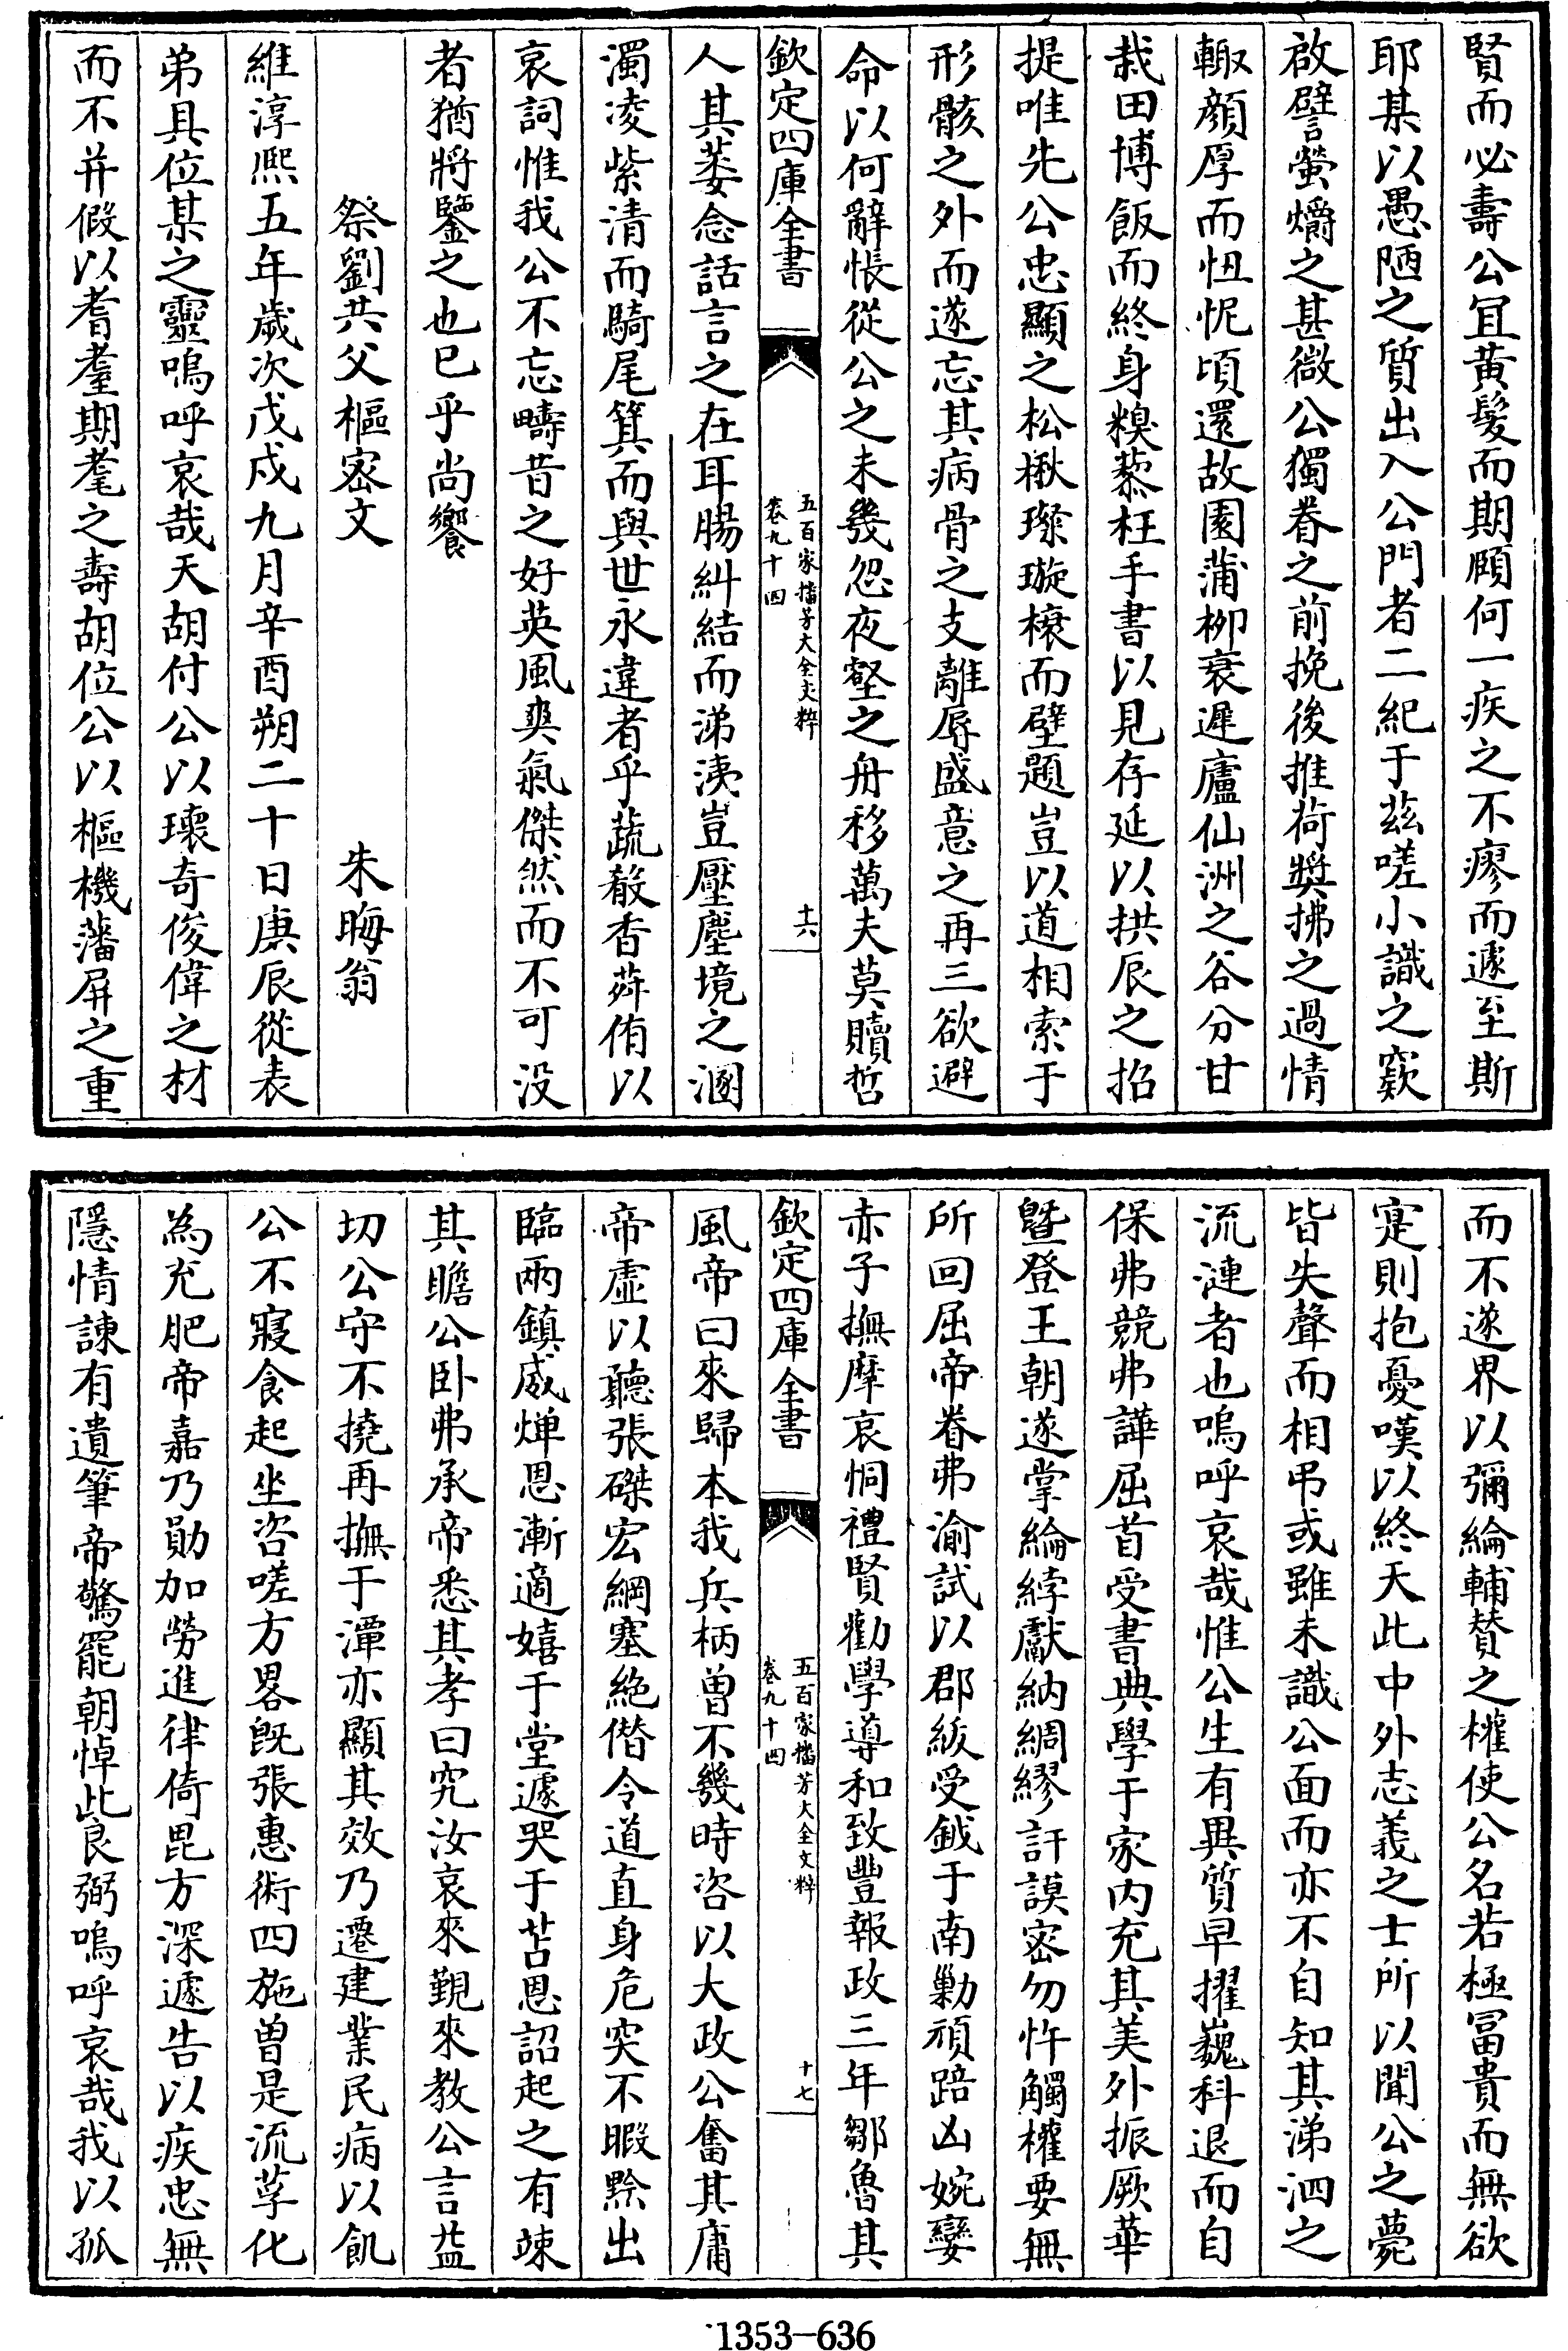 賢而必壽公宜黄髮而期頤何一疾之不瘳而遽至斯
耶某以愚陋之質出入公門者二紀于茲嗟小識之窾
啟譬螢爝之甚微公獨眷之前挽後推荷奬拂之過情
輙顔厚而忸怩頃還故園蒲柳衰遲廬仙洲之谷分甘
栽田博飯而終身糗藜枉手書以見存延以拱辰之招
提唯先公忠顯之松楸璨璇榱而壁題豈以道相索于
形骸之外而遂忘其病骨之支離辱盛意之再三欲避
命以何辭悵從公之未幾忽夜壑之舟移萬夫莫贖哲
欽定四庫全書
五百家播芳大全文粹
卷九十四
十六
人其萎念話言之在耳腸糾結而涕洟豈壓塵境之溷
濁凌紫清而騎尾箕而與世永違者乎蔬殽香荈侑以
哀詞惟我公不忘疇昔之好英風爽氣傑然而不可没
者猶將鑒之也已乎尚饗
祭劉共父樞密文
朱晦翁
維淳熙五年歲次戊戌九月辛酉朔二十日庚辰從表
弟具位某之靈嗚呼哀哉天胡付公以瓌奇俊偉之材
而不并假以耆耋期耄之壽胡位公以樞機藩屏之重
而不遂界以彌綸輔賛之權使公名若極冨貴而無欲
寔則抱憂嘆以終天此中外志義之士所以聞公之薨
皆失聲而相弔或雖未識公面而亦不自知其涕泗之
流漣者也嗚呼哀哉惟公生有異質早擢巍科退而自
保弗競弗譁屈首受書典學于家内充其美外振厥華
曁登王朝遂掌綸綍獻納綢繆訏謨密勿忤觸權要無
所回屈帝眷弗渝試以郡紱受鉞于南勦頑踣凶婉孌
赤子撫摩哀恫禮賢勸學導和致豐報政三年鄒魯其
欽定四庫全書
五百家播芳大全文粹
卷九十四
十七
風帝曰來歸本我兵柄曽不幾時咨以大政公奮其庸
帝虛以聽張磔宏綱塞絶僭令道直身危突不暇黔出
臨兩鎮威燀恩漸適嬉于堂遽哭于苫恩詔起之有竦
其瞻公卧弗承帝悉其孝曰究汝哀來覲來教公言益
切公守不撓再撫于潭亦顯其效乃遷建業民病以飢
公不寢食起坐咨嗟方畧旣張惠術四施曽是流莩化
為充肥帝嘉乃勛加勞進律倚毘方深遽告以疾忠無
隱情諫有遺筆帝驚罷朝悼此良弼嗚呼哀哉我以孤
1353-636